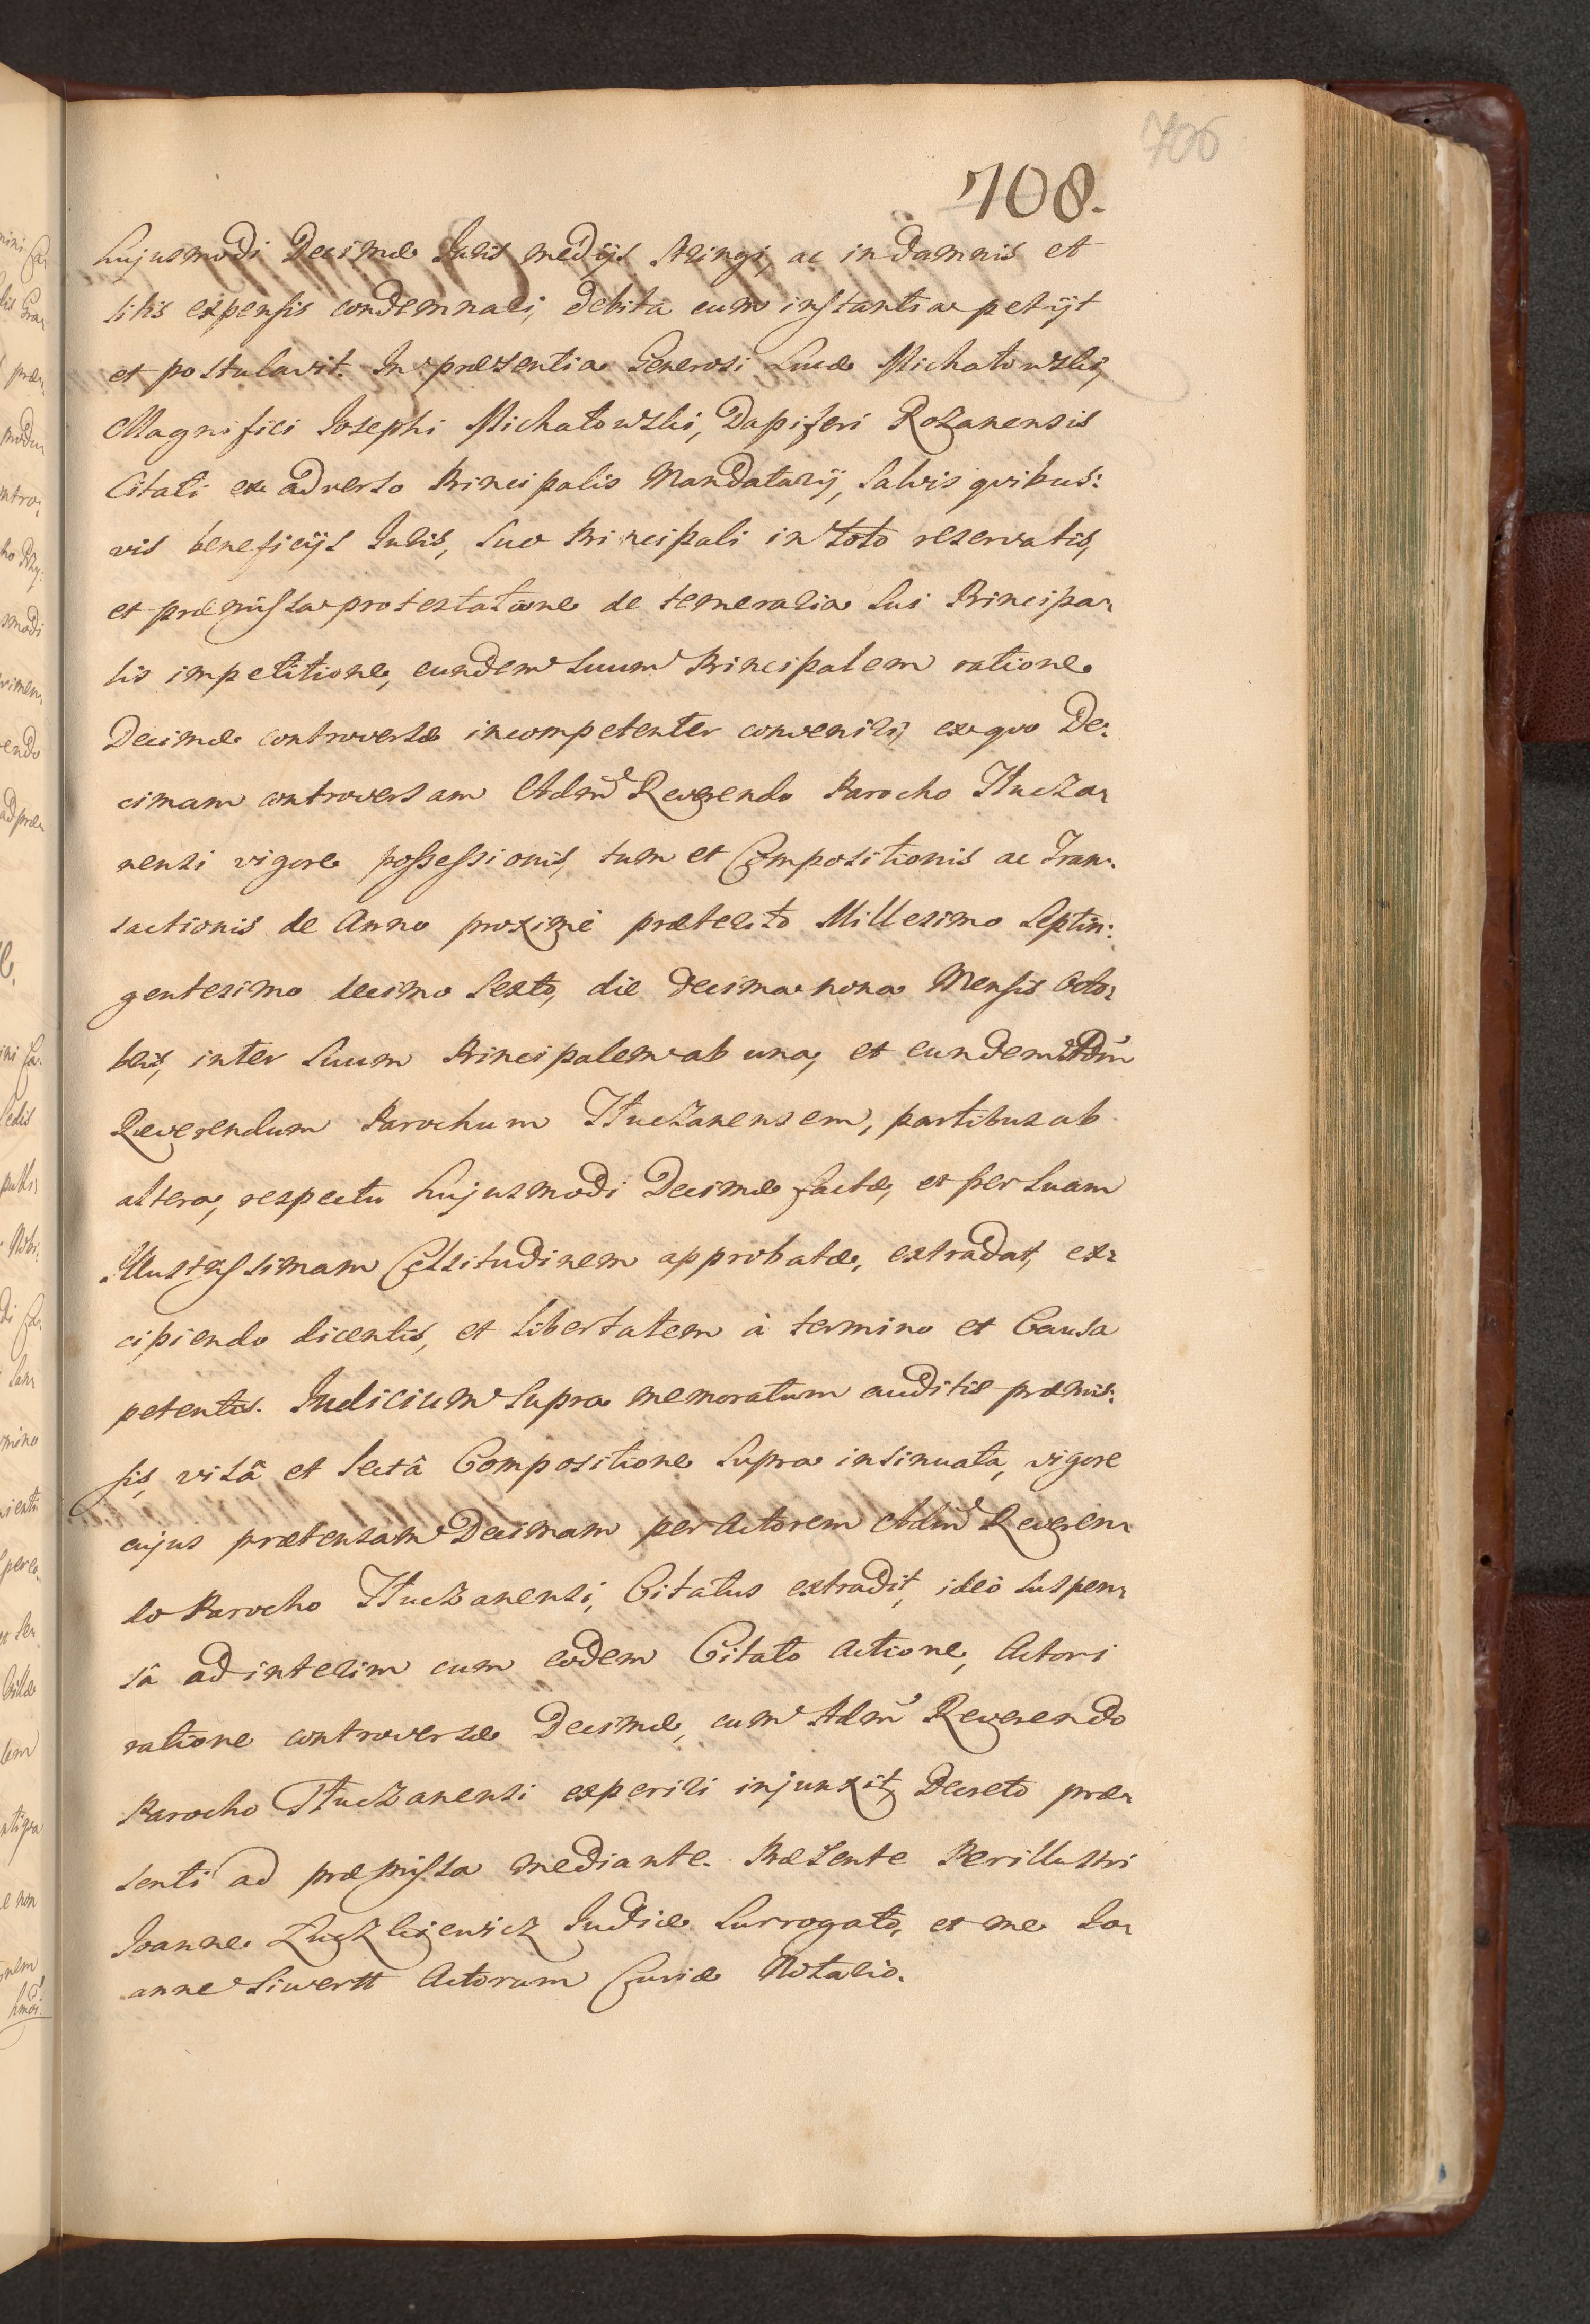 706
708.
hujusmodi Decimæ Juris medijs stringi, ac in damnis et
litis expensis condemnari, debita cum instantia petijt
et postulavit. In præsentia Generosi Lucæ Michałowski,
Magnifici Josephi Michałowski, Dapiferi Rożanensis
Citati ex adverso Principalis Mandatarij, salvis quibus:
vis beneficijs Juris, suo Principali in toto reservatis,
et præmissa protestatione de temeraria sui Principa-
lis impetitione, eundem suum Principalem ratione
Decimæ controversæ incompetenter conveniri, ex quo De:
cimam controversam Adm̃ Reverendo Parocho Tłucza-
nensi vigore possessionis, tum et Compositionis ac Tran-
sactionis de Anno proximè præterito Millesimo Septin:
gentesimo decimo sexto, die decima nona Mensis Octo-
bris, inter suum Principalem ab una, et eundem Adm̃
Reverendum Parochum Tłuczanensem, partibus ab
altera, respectu hujusmodi Decimæ factæ, et per suam
Illustrissimam Celsitudinem approbatæ, extradat, ex-
cipiendo dicentis, et libertatem à termino et Causa
petentis. Judicium supra memoratum auditis præmis:
sis, visâ et lectâ Compositione supra insinuata, vigore
cujus prætensam Decimam per Actorem Adm̃ Reveren-
do Parocho Tłuczanensi, Citatus extradit, ideò suspen-
sâ ad interim cum eodem Citato Actione, Actori
ratione controversæ Decimæ, cum Adm̃ Reverendo
Parocho Tłuczanensi experiri injunxit, Decreto præ-
senti ad præmissa mediante. Præsente Perillustri
Joanne Judice Surrogato, et me Jo-
anne Siwertt Actorum Curiæ Notario.